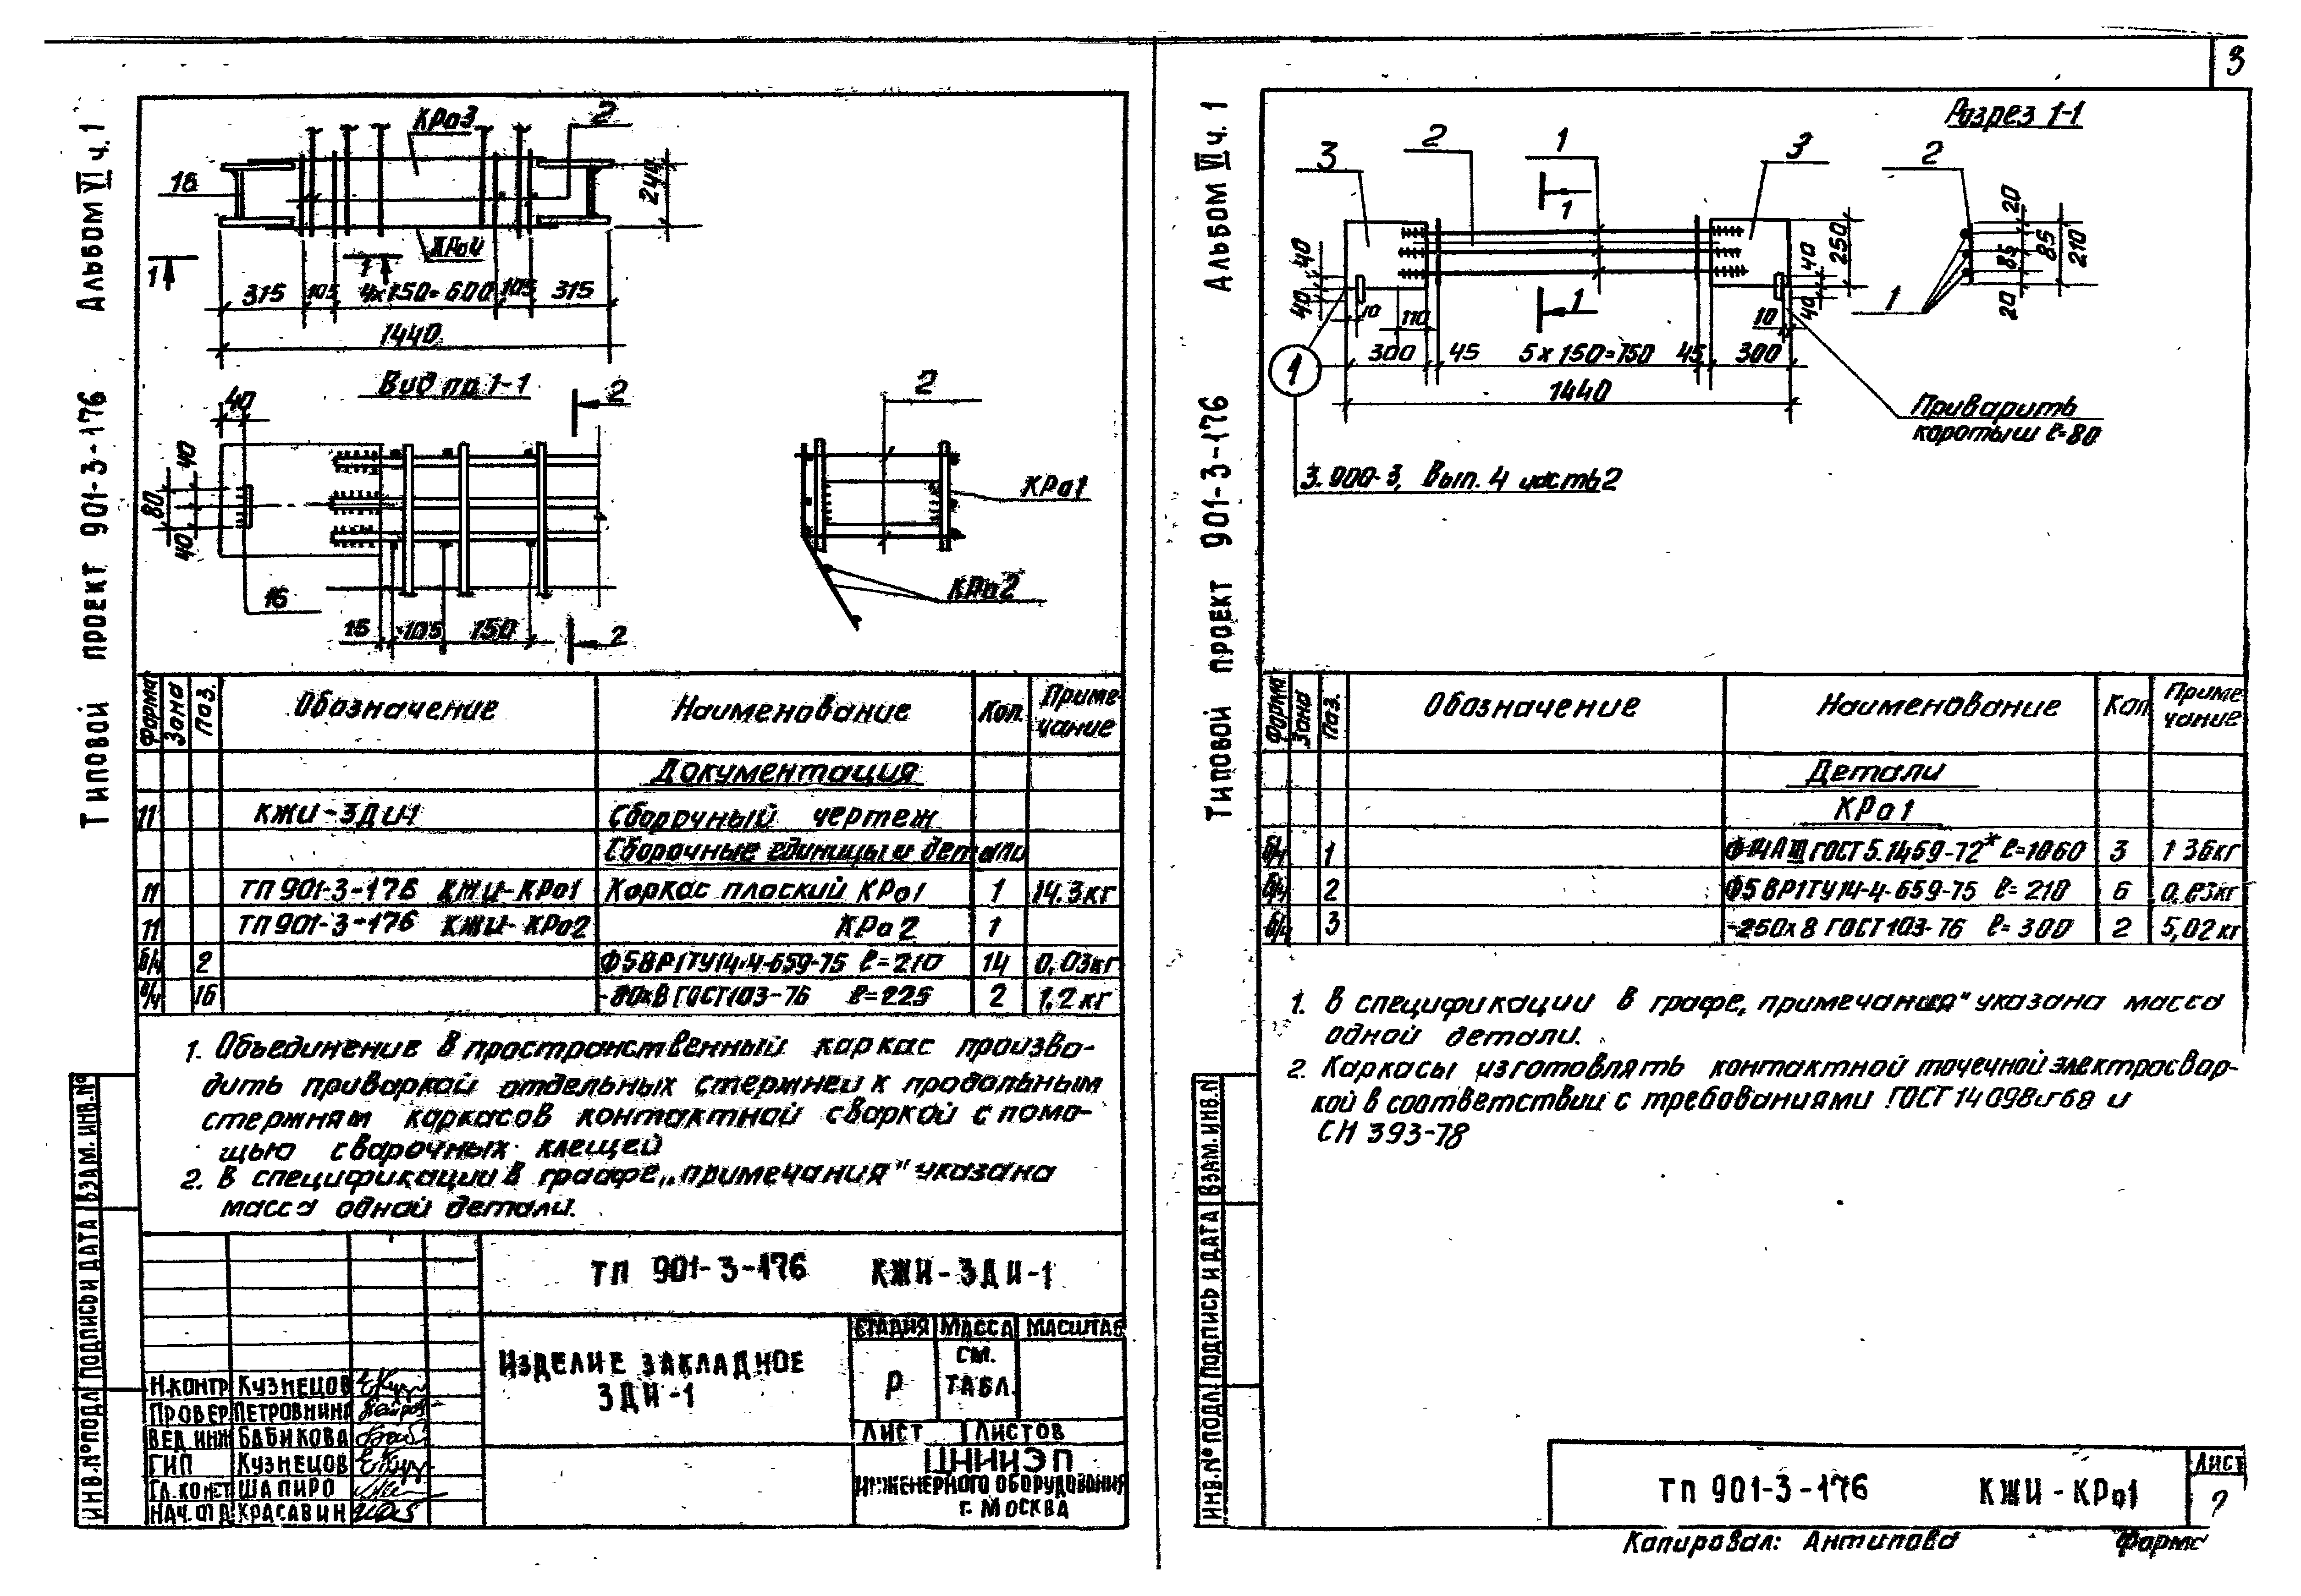 3
Альбом VI ч. 1
Типовой проект 901-3-176
КРо3
2
16
240
КРо4
1
1
315
105
4×150=600
105
315
1440
Вид по 1-1
2
40
40
80
40
16
16
105
150
2
2
КРо1
КРо2
Форма
Зона
Поз.
Обозначение
Наименование
Кол.
Приме-
чание
Документация
11 КЖИ-ЗДИ-1 Сборочный чертеж
Сборочные единицы и детали
11 ТП 901-3-176 КЖИ-КРо1 Каркас плоский КРо1 1 14.3кг
11 ТП 901-3-176 КЖИ-КРо2 КРо2 1
б/ч 2 Ф5ВР1ТУ14-4-659-75 ℓ=210 14 0,03кг
б/ч 16 -80×8 ГОСТ103-76 ℓ=225 2 1,2 кг
1. Объединение в пространственный каркас произво-
дить приваркой отдельных стержней к продольным
стержням каркасов контактной сваркой с помо-
щью сварочных клещей
2. В спецификации в графе „примечания" указана
масса одной детали.
ИНВ.№ ПОДЛ ПОДПИСЬ И ДАТА ВЗАМ. ИНВ.№
ТП 901-3-176 КЖИ-ЗДИ-1
Изделие закладное
ЗДИ-1
СТАДИЯ МАССА МАСШТАБ
Р
СМ.
ТАБЛ.
ЛИСТ ЛИСТОВ
Н.КОНТР КУЗНЕЦОВ
ПРОВЕР ПЕТРОВНИНА
ВЕД ИНЖ БАБИКОВА
ГИП КУЗНЕЦОВ
ГЛ.КОНСТ ШАПИРО
НАЧ.ОТД КРАСАВИН
ЦНИИЭП
ИНЖЕНЕРНОГО ОБОРУДОВАНИЯ
г. МОСКВА
Альбом VI ч. 1
Типовой проект 901-3-176
Разрез 1-1
3
2
1
3
2
1
1
40
40
10
110
300
45
5×150=750
45
300
1440
40
250
10
40
1
20
85
85
210
20
1
Приварить
коротыш ℓ=80
3.900-3, Вып. 4 часть 2
Форма
Зона
Поз.
Обозначение
Наименование
Кол
Приме-
чание
Детали
КРо1
б/ч 1 Ф14АIII ГОСТ 5.1459-72* ℓ=1060 3 1 36кг
б/ч 2 Ф5 ВР1ТУ14-4-659-75 ℓ=210 6 0,03кг
б/ч 3 -250×8 ГОСТ103-76 ℓ=300 2 5,02 кг
1. В спецификации в графе „примечания" указана масса
одной детали.
2. Каркасы изготовлять контактной точечной электросвар-
кой в соответствии с требованиями ГОСТ 14098-68 и
СН 393-78
ИНВ.№ ПОДЛ ПОДПИСЬ И ДАТА ВЗАМ. ИНВ.№
ТП 901-3-176 КЖИ-КРо1
ЛИСТ
2
Копировал: Антипова
Форма